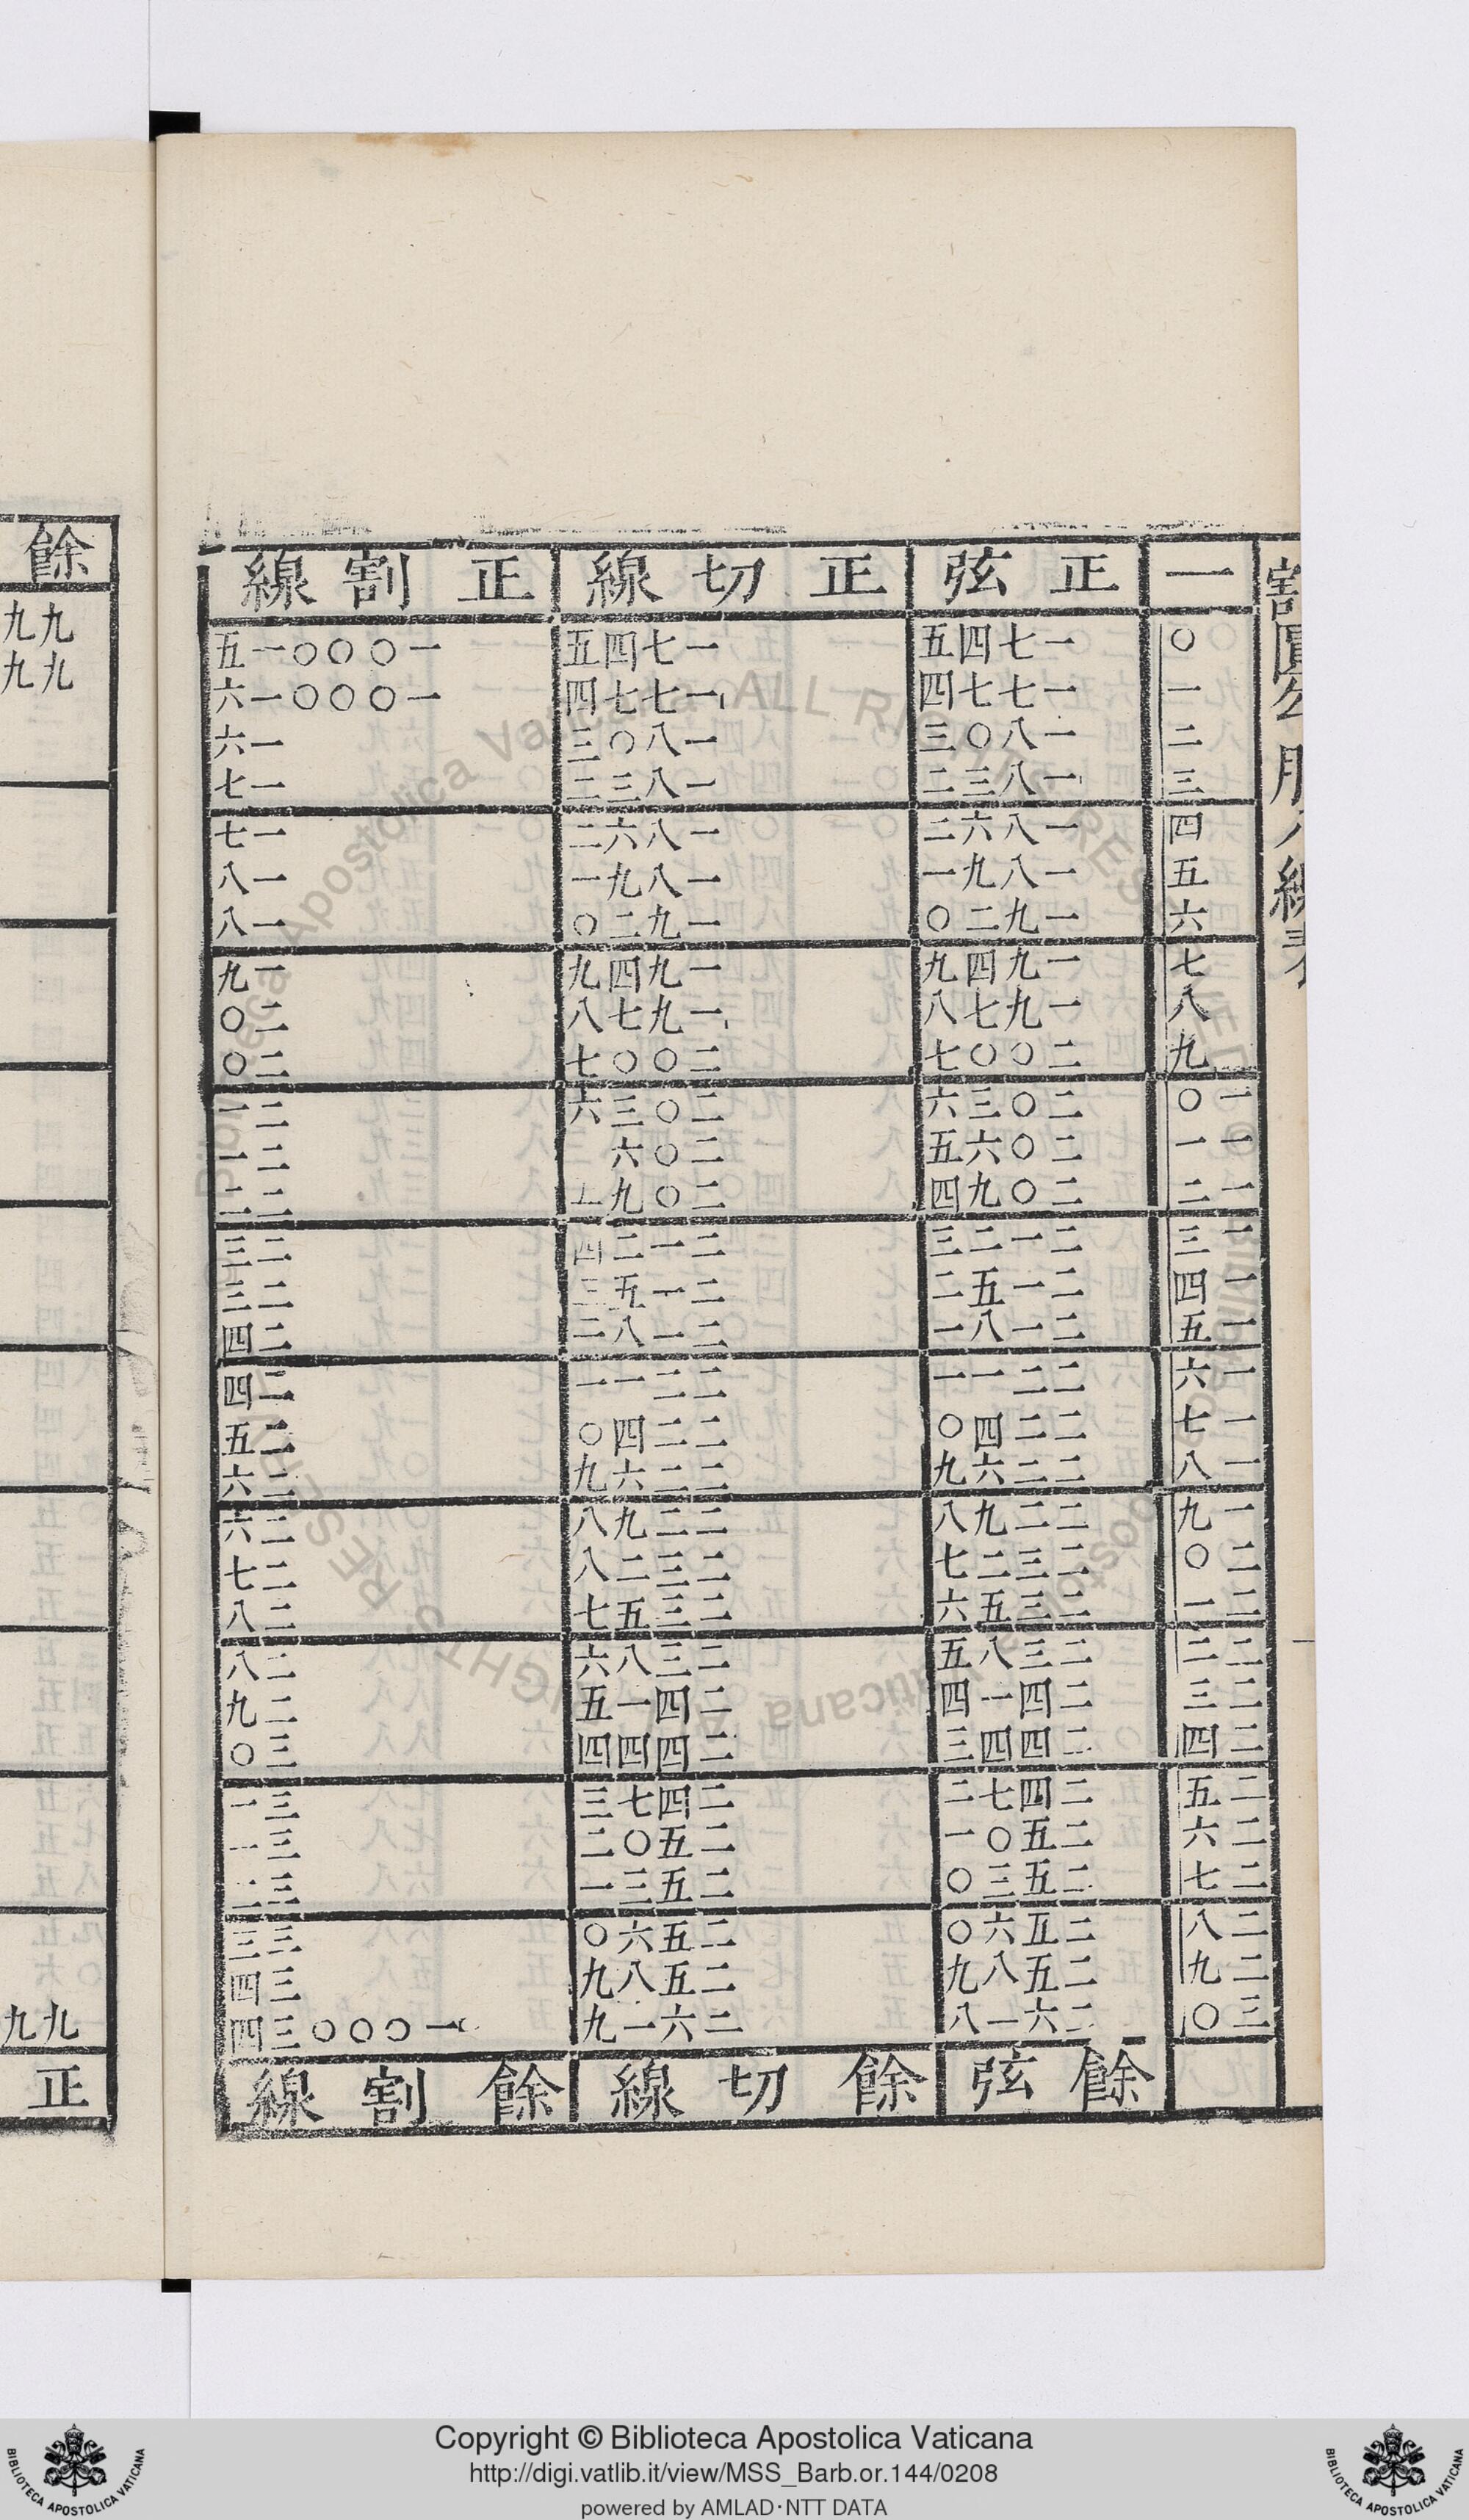 割圓勾股八線表
一 正弦 正切線 正割線
〇 一七四五 一七四五 一〇〇〇一五
一 一七七四 一七七四 一〇〇〇一六
二 一八〇三 一八〇三 一六
三 一八三二 一八三二 一七
四 一八六二 一八六二 一七
五 一八九一 一八九一 一八
六 一九二〇 一九二〇 一八
七 一九四九 一九四九 一九
八 一九七八 一九七八 二〇
九 二〇〇七 二〇〇七 二〇
一〇 二〇三六 二〇三六 二一
一一 二〇六五 二〇六 二一
一二 二〇九四 二〇九 二二
一三 二一二三 二一二四 二三
一四 二一五二 二一五三 二三
一五 二一八一 二一八二 二四
一六 二二一一 二二一一 二四
一七 二二四〇 二二四〇 二五
一八 二二六九 二二六九 二六
一九 二二九八 二二九八 二六
二〇 二三二七 二三二八 二七
二一 二三五六 二三五七 二八
二二 二三八五 二三八六 二八
二三 二四一四 二四一五 二九
二四 二四四三 二四四四 三〇
二五 二四七二 二四七三 三一
二六 二五〇一 二五〇二 三一
二七 二五三〇 二五三一 三二
二八 二五六〇 二五六〇 三三
二九 二五八九 二五八九 三四
三〇 二六一八 二六一九 一〇〇〇三四
餘弦 餘切線 餘割線
餘
九九
九九
九九
正
Copyright © Biblioteca Apostolica Vaticana
http://digi.vatlib.it/view/MSS_Barb.or.144/0208
powered by AMLAD·NTT DATA
BIBLIOTECA APOSTOLICA VATICANA
BIBLIOTECA APOSTOLICA VATICANA